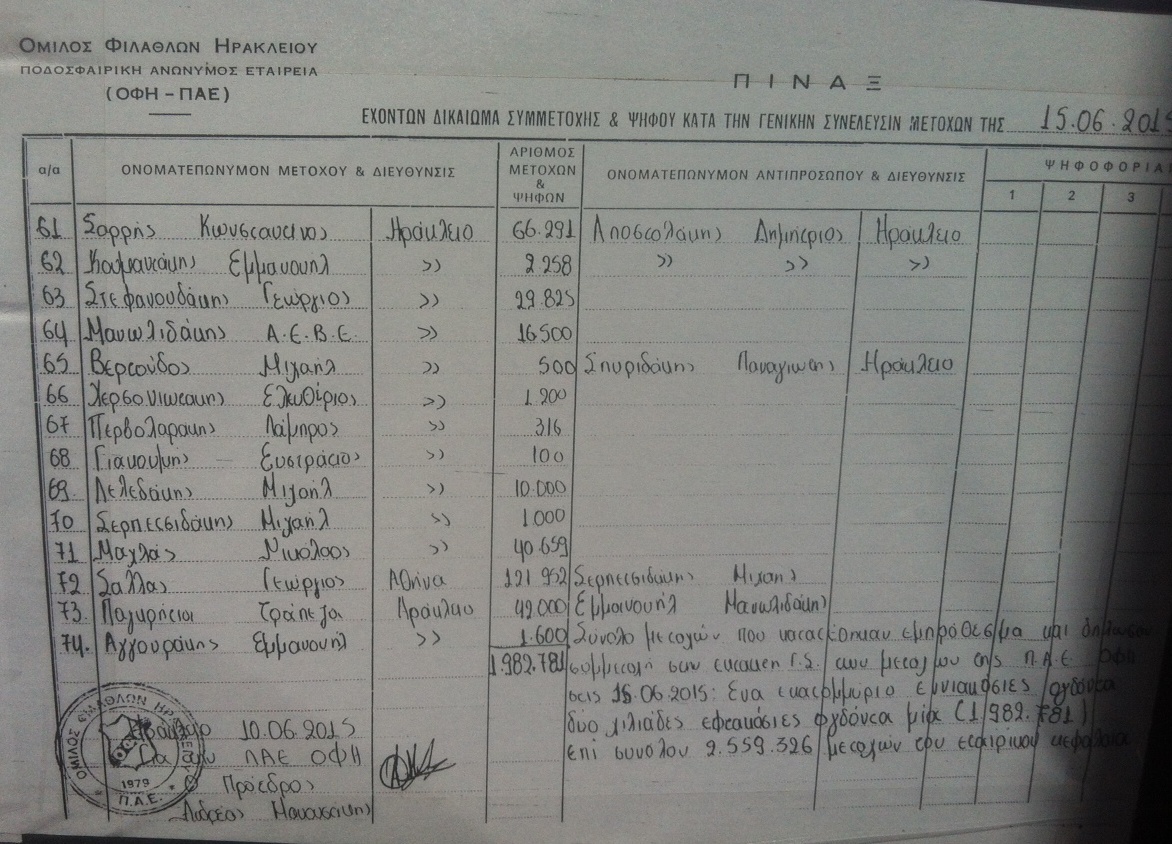 ΟΜΙΛΟΣ ΦΙΛΑΘΛΩΝ ΗΡΑΚΛΕΙΟΥ
ΠΟΔΟΣΦΑΙΡΙΚΗ ΑΝΩΝΥΜΟΣ ΕΤΑΙΡΕΙΑ
(ΟΦΗ - ΠΑΕ)
ΠΙΝΑΞ
ΕΧΟΝΤΩΝ ΔΙΚΑΙΩΜΑ ΣΥΜΜΕΤΟΧΗΣ & ΨΗΦΟΥ ΚΑΤΑ ΤΗΝ ΓΕΝΙΚΗΝ ΣΥΝΕΛΕΥΣΙΝ ΜΕΤΟΧΩΝ ΤΗΣ 15.06.2015
α/α ΟΝΟΜΑΤΕΠΩΝΥΜΟΝ ΜΕΤΟΧΟΥ & ΔΙΕΥΘΥΝΣΙΣ ΑΡΙΘΜΟΣ ΜΕΤΟΧΩΝ & ΨΗΦΩΝ ΟΝΟΜΑΤΕΠΩΝΥΜΟΝ ΑΝΤΙΠΡΟΣΩΠΟΥ & ΔΙΕΥΘΥΝΣΙΣ ΨΗΦΟΦΟΡΙΑ
1 2 3
61 Σαρρής Κωνσταντινος Ηράκλειο 66.291 Αποστολάκης Δημήτριος Ηράκλειο
62 Καμανάκης Εμμανουήλ >> 2.258 >> >> >>
63 Στεφανουδάκης Γεώργιος >> 29.825
64 Μανωλιδάκης Α.Ε.Β.Ε. >> 16500
65 Βερτούδος Μιχαήλ >> 500 Σπυριδάκης Παναγιωτης Ηράκλειο
66 Χερσονιωτακης Ελευθέριος >> 1.200
67 Περβολαρακης Λάμπρος >> 316
68 Ευστράτιος >> 100
69. Λελεδάκης Μιχαήλ >> 10.000
70 Σερπετσιδάκης Μιχαήλ >> 1.000
71 Μαχλάς Νικολαος >> 40.659
72 Σαλλας Γεώργιος Αθήνα 121 952 Σερπετσιδακης Μιχαηλ
73. Παγκρήτια Τράπεζα Ηράκλειο 42.000 Εμμανουήλ Μανωλιδάκης
74. Αγγουράκης Εμμανουήλ >> 1.600 Σύνολο μετοχών που κατατέθηκαν εμπρόθεσμα και
1.982.781 συμμετοχή στην εκτακτη Γ.Σ. των μετοχων της Π.Α.Ε. ΟΦΗ
στις 15.06.2015: Ενα εκατομμύριο εννιακόσιες ογδόντα
δύο χιλιάδες εφτακόσιες ογδόντα μία (1.982.781)
επί συνολου 2.559.326 μετοχών του εταιρικου κεφαλαίου
Ηράκλειο 10.06.2015
Για την ΠΑΕ ΟΦΗ
Πρόεδρος
ΟΜΙΛΟΣ ΦΙΛΑΘΛΩΝ ΗΡΑΚΛΕΙΟΥ
1979
Π.Α.Ε.